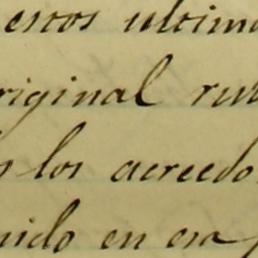 estos ultim
riginal ru
s los acreedo
nido en esa